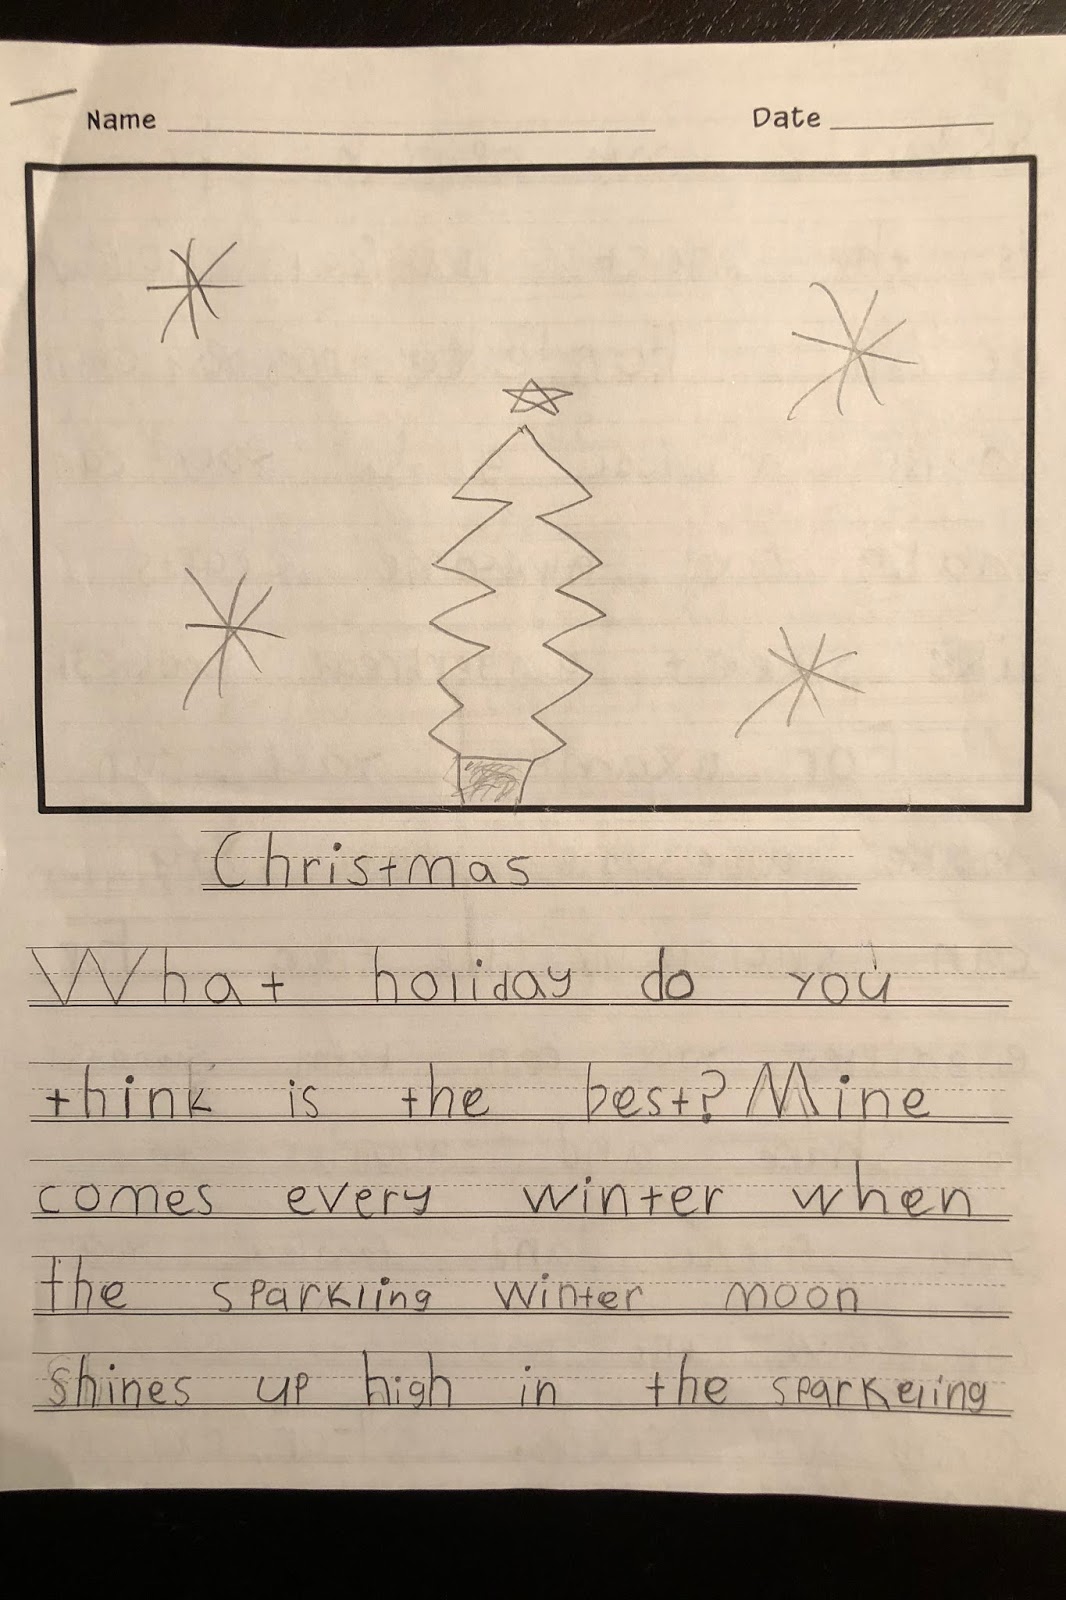 Name
Date
Christmas
What holiday do you
think is the best? Mine
comes every winter when
the sparkling winter moon
shines up high in the sparkeling